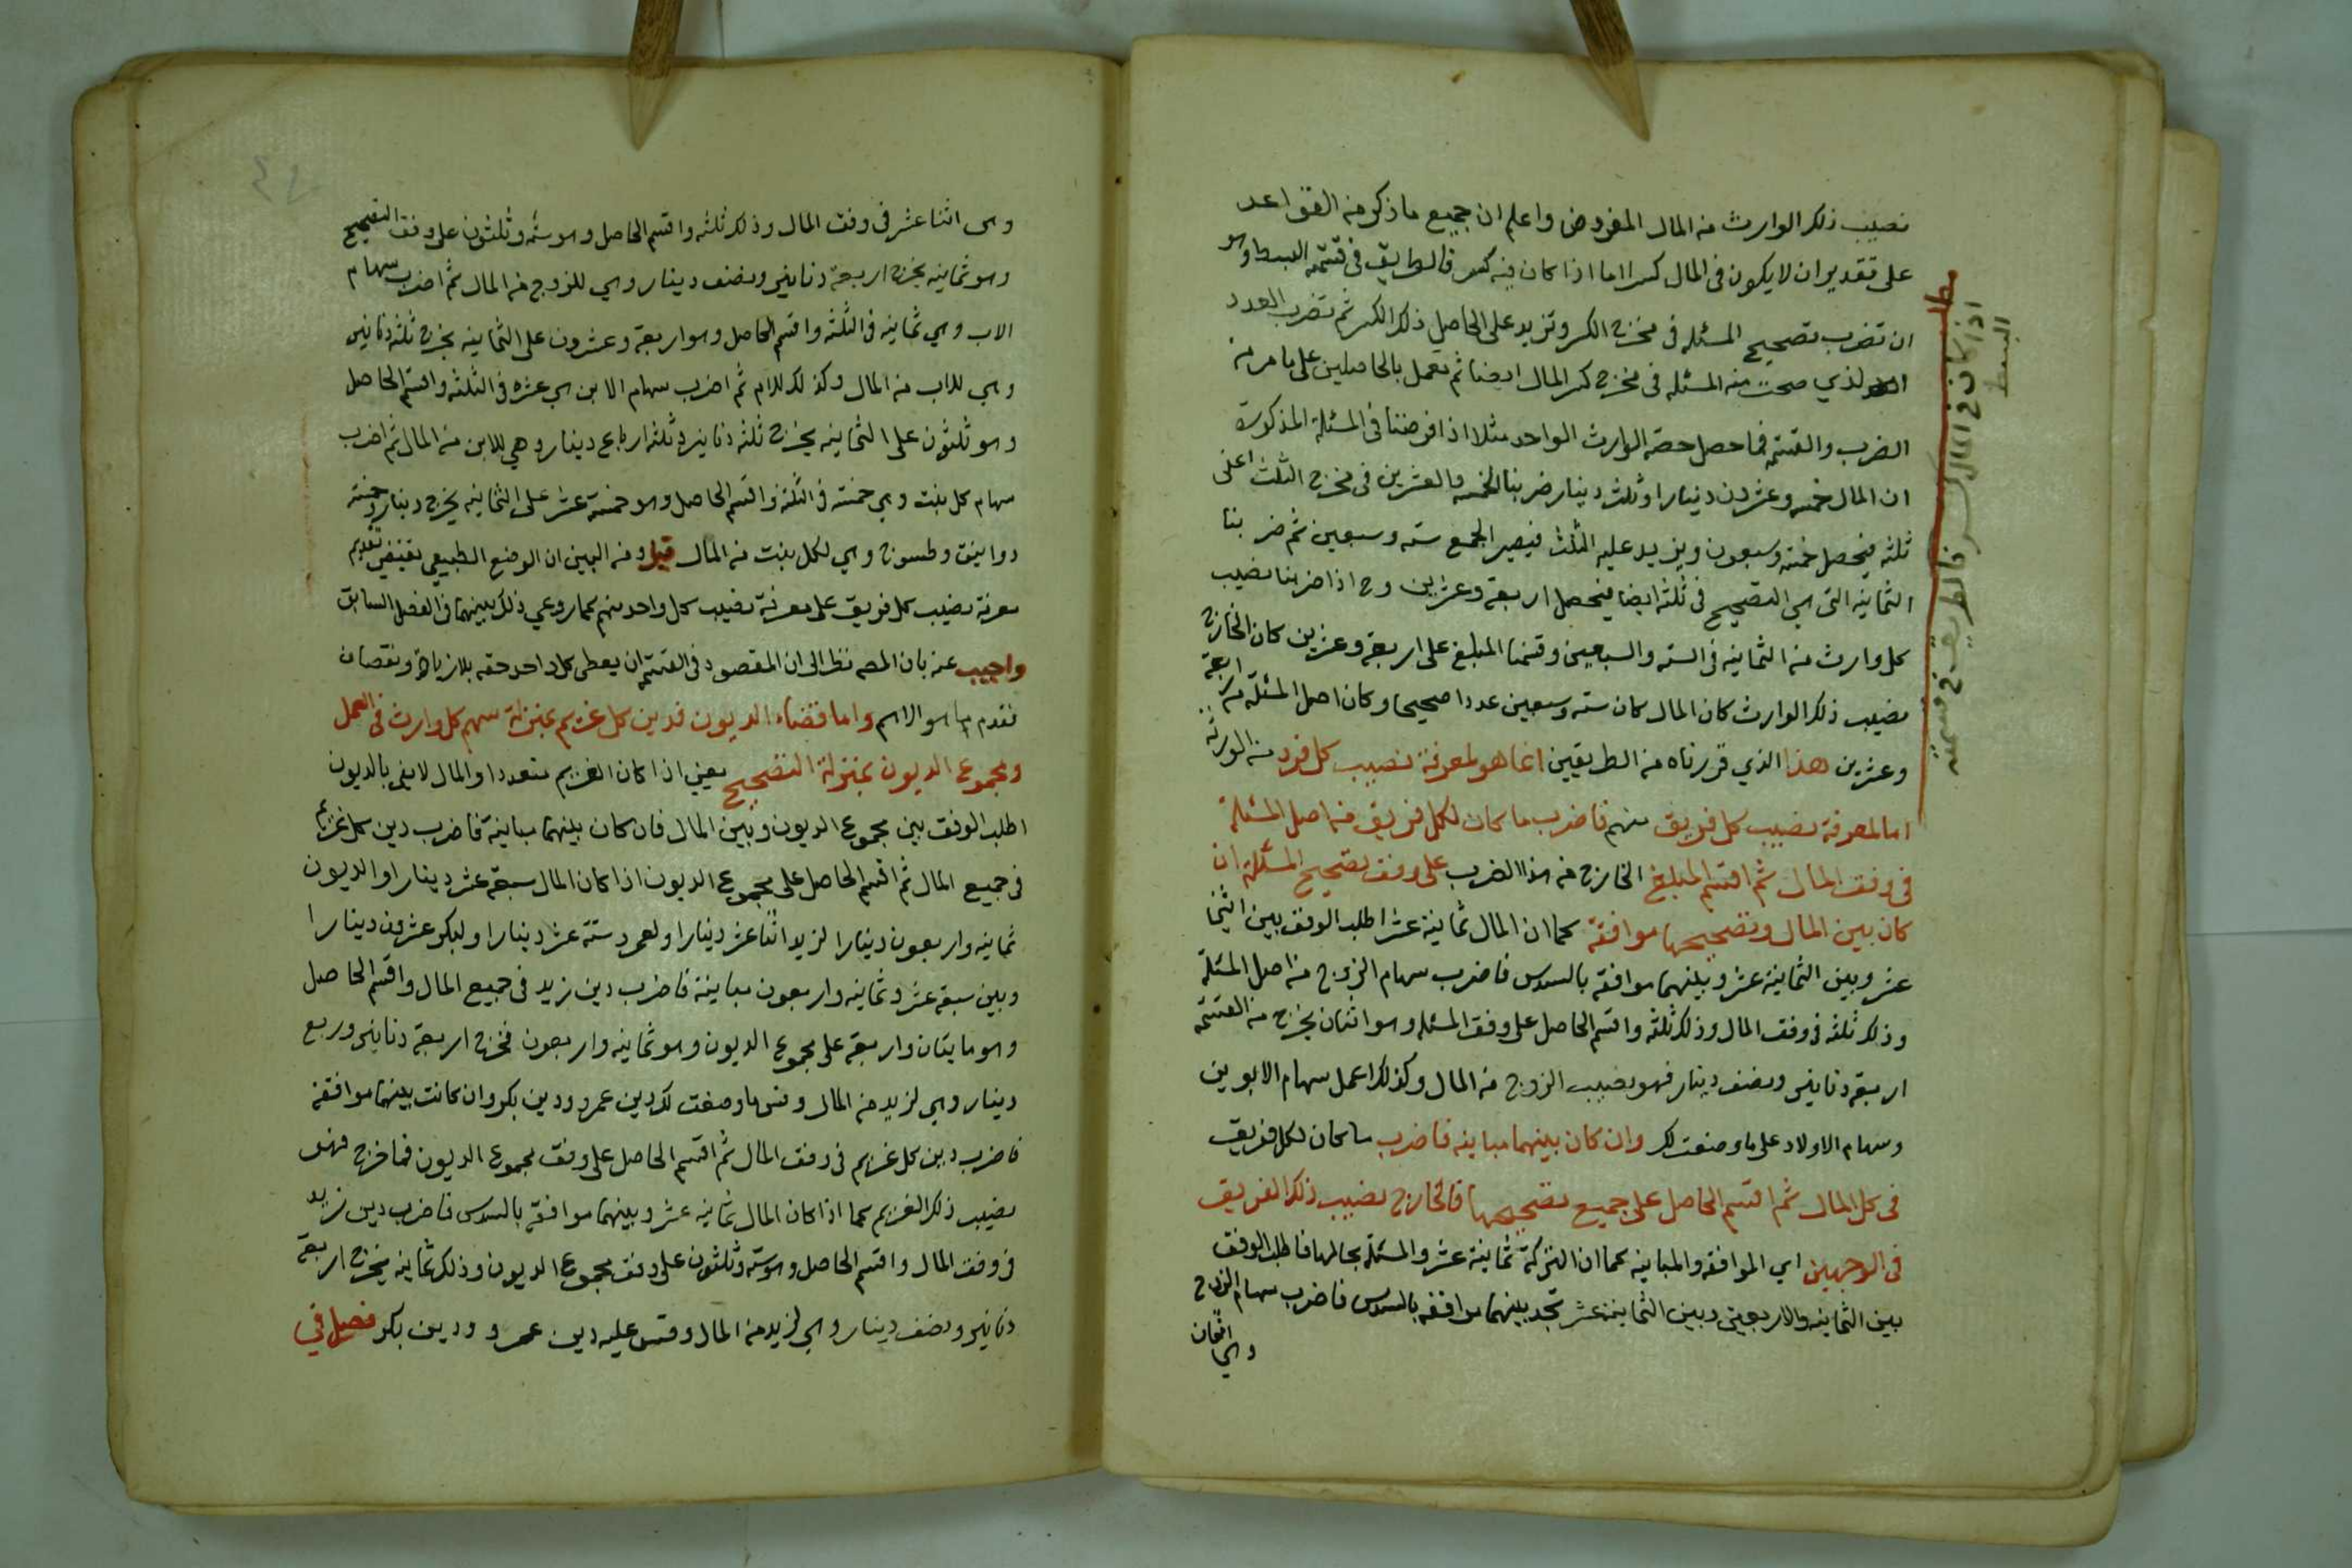 نصيب ذلك الوارث من المال المفروض واعلم ان جميع ما ذكر من القواعد
على تقدير ان لا يكون في المال كسر اما اذا كان فيه كسر فالطريق في قسمته البسط وهو
ان تضرب تصحيح المسئلة في مخرج الكسر وتزيد على الحاصل ذلك الكسر ثم تضرب العدد
الذي صحت منه المسئلة في مخرج كسر المال ايضا ثم تعمل بالحاصلين على ما مر من
الضرب والقسمة فما حصل حصة الوارث الواحد مثلا اذا فرضنا في المسئلة المذكورة
ان المال خمسه وعشرون دينارا وثلث دينار ضربنا الخمسه والعشرين في مخرج الثلث اعنى
ثلثه فيحصل خمسه وسبعون ويزيد عليه الثلث فيصير الجمع سته وسبعين ثم ضربنا
الثمانيه التى هي التصحيح في ثلثه ايضا فيحصل اربعة وعشرين وح اذا ضربنا نصيب
كل وارث من الثمانيه في السته والسبعين وقسمنا المبلغ على اربعة وعشرين كان الخارج
نصيب ذلك الوارث كان المال كان سته وسبعين عددا صحيحا وكان اصل المسئلة من اربعة
وعشرين هذا الذي قررناه من الطريقين انما هو لمعرفة نصيب كل فرد من الورثة
اما لمعرفة نصيب كل فريق منهم فاضرب ما كان لكل فريق من اصل المسئلة
في وفق المال ثم اقسم المبلغ الخارج من هذا الضرب على وفق تصحيح المسئلة ان
كان بين المال وتصحيحها موافقة كما ان المال ثمانية عشر اطلب الوفق بين اثنا
عشر وبين الثمانية عشر وبينهما موافقة بالسدس فاضرب سهام الزوج من اصل المسئلة
وذلك ثلثه في وفق المال وذلك ثلثه واقسم الحاصل على وفق المسئلة وهو اثنان يخرج من القسمة
اربعة دنانير ونصف دينار فهو نصيب الزوج من المال وكذلك اعمل سهام الابوين
وسهام الاولاد على ما وصفت لك وان كان بينهما مباينه فاضرب ما كان لكل فريق
في كل المال ثم اقسم الحاصل على جميع تصحيحها فالخارج نصيب ذلك الفريق
في الوجهين اي الموافقه والمباينه كما ان التركة ثمانية عشر والمسئلة بحالها فاطلب الوفق
بين الثمانيه والاربعين وبين الثمانية عشر تجد بينهما موافقه بالسدس فاضرب سهام الزوج
وهي اثنان
مطلب
اذا كان في المال كسر فالطريق في قسمته
البسط
وهى اثنا عشر في وفق المال وذلك ثلثه واقسم الحاصل وهو سته وثلثون على وفق التصحيح
وهو ثمانيه يخرج اربعة دنانير ونصف دينار وهي للزوج من المال ثم اضرب سهام
الاب وهي ثمانيه في الثلثه واقسم الحاصل وهو اربعة وعشرون على الثمانيه يخرج ثلثه دنانير
وهي للاب من المال وكذلك للام ثم اضرب سهام الابن هي عشره في الثلثه واقسم الحاصل
وهو ثلثون على الثمانيه يخرج ثلثه دنانير وثلثه ارباع دينار وهي للابن من المال ثم اضرب
سهام كل بنت وهي خمسة في الثلثة واقسم الحاصل وهو خمسة عشر على الثمانيه يخرج دينار وخمسة
دوانيق وطسوج وهي لكل بنت من المال قيل ومن البين ان الوضع الطبيعي يقتضي تقديم
معرفة نصيب كل فريق على معرفة نصيب كل واحد منهم كما روعي ذلك بينهما في الفصل السابق
واجيب عنه بان المصه نظر الى ان المقصود في القسمة ان يعطى كل واحد حقه بلا زيادة ونقصان
فقدم ما هو الاهم واما قضاء الديون فدين كل غريم بمنزلة سهم كل وارث في العمل
ومجموع الديون بمنزلة التصحيح يعني اذا كان الغريم متعددا والمال لا يفي بالديون
اطلب الوفق بين مجموع الديون وبين المال فان كان بينهما مباينة فاضرب دين كل غريم
في جميع المال ثم اقسم الحاصل على مجموع الديون اذا كان المال سبعة عشر دينارا والديون
ثمانيه واربعون دينارا لزيد اثنا عشر دينارا ولعمرو ستة عشر دينارا ولبكر عشرون دينارا
وبين سبعة عشر وثمانيه واربعون مباينة فاضرب دين زيد في جميع المال واقسم الحاصل
وهو مايتان واربعة على مجموع الديون وهو ثمانيه واربعون فخرج اربعة دنانير وربع
دينار وهي لزيد من المال وقس ما وصفت لك دين عمرو ودين بكر وان كانت بينهما موافقة
فاضرب دين كل غريم في وفق المال ثم اقسم الحاصل على وفق مجموع الديون فما خرج فهو
نصيب ذلك الغريم كما اذا كان المال ثمانيه عشر وبينهما موافقة بالسدس فاضرب دين زيد
في وفق المال واقسم الحاصل وهو سته وثلثون على وفق مجموع الديون وذلك ثمانيه يخرج اربعة
دنانير ونصف دينار وهي لزيد من المال وقس عليه دين عمرو ودين بكر فصل في